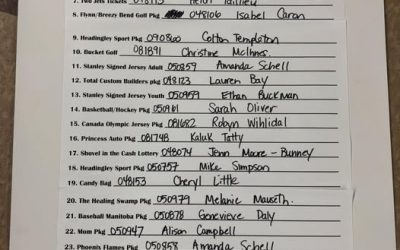 7. Two Jets Tickets 048113
8. Flynn/Breezy Bend Golf Pkg 048106 Isabel Caron
9. Headingley Sport Pkg 090860 Colton Templeton
10. Bucket Golf 081891 Christine McInnes
11. Stanley Signed Jersey Adult 050859 Amanda Schell
12. Total Custom Builders pkg 048123 Lauren Bay
13. Stanley Signed Jersey Youth 050959 Ethan Buckman
14. Basketball/Hockey Pkg 050961 Sarah Oliver
15. Canada Olympic Jersey Pkg 081682 Robyn Wihlidal
16. Princess Auto Pkg 081748 Kaluk Tatty
17. Shovel in the Cash Lottery 048074 Jenn Moore-Bunney
18. Headingley Sport Pkg 056757 Mike Simpson
19. Candy Bag 048153 Cheryl Little
20. The Healing Swamp Pkg 050979 Melanie Mauseth
21. Baseball Manitoba Pkg 050878 Genevieve Daly
22. Mom Pkg 050947 Alison Campbell
23. Phoenix Flames Pkg 050858 Amanda Schell